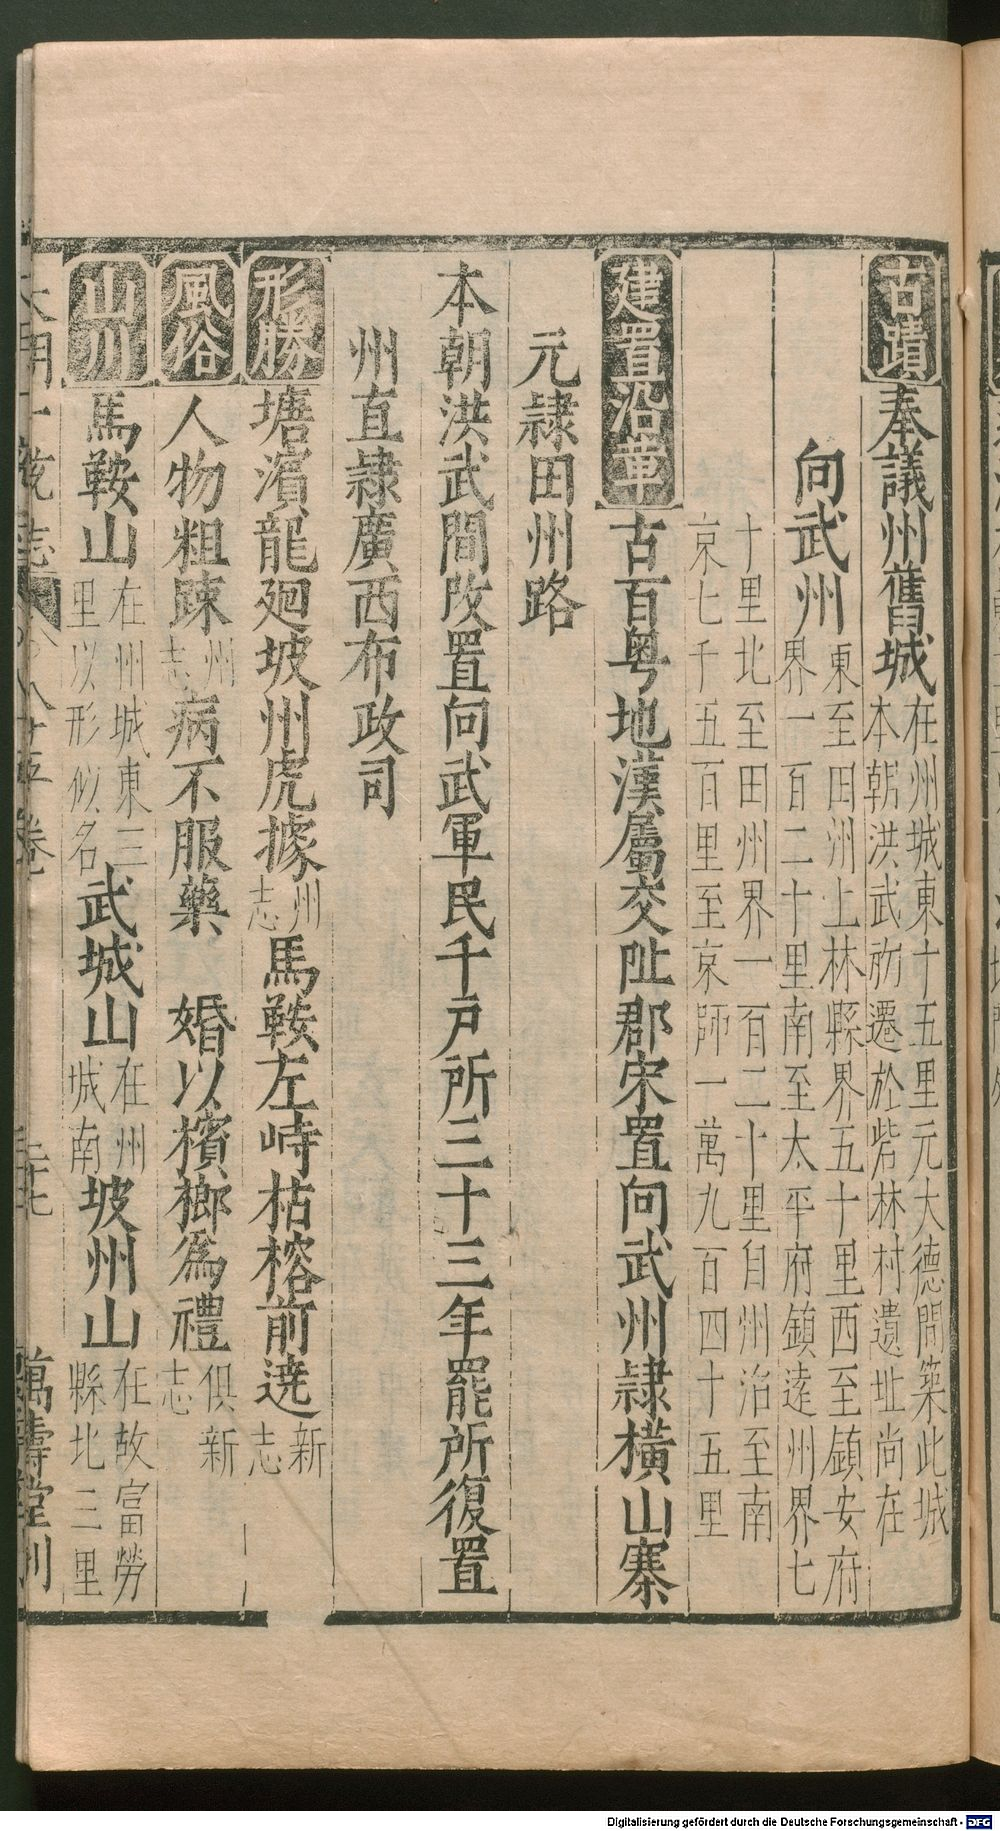 古蹟奉議州舊城在州城東十五里元大德間築此城
本朝洪武初遷於砦林村遺址尚在
向武州東至田州上林縣界五十里西至鎮安府
界一百二十里南至太平府鎮遠州界七
十里北至田州界一百二十里自州治至南
京七千五百里至京師一萬九百四十五里
建置沿革古百粤地漢屬交阯郡宋置向武州隷橫山寨
元隷田州路
本朝洪武間改置向武軍民千戸所三十三年罷所復置
州直隷廣西布政司
形勝塘濵龍廻坡州虎據州志馬鞍左峙枯榕前遶新志
風俗人物粗踈州志病不服藥 婚以檳榔為禮俱新志
山川馬鞍山在州城東三里以形似名武城山在州城南坡州山在故富勞縣北三里
大明一統志 卷 萬壽堂刊
Digitalisierung gefördert durch die Deutsche Forschungsgemeinschaft - DFG